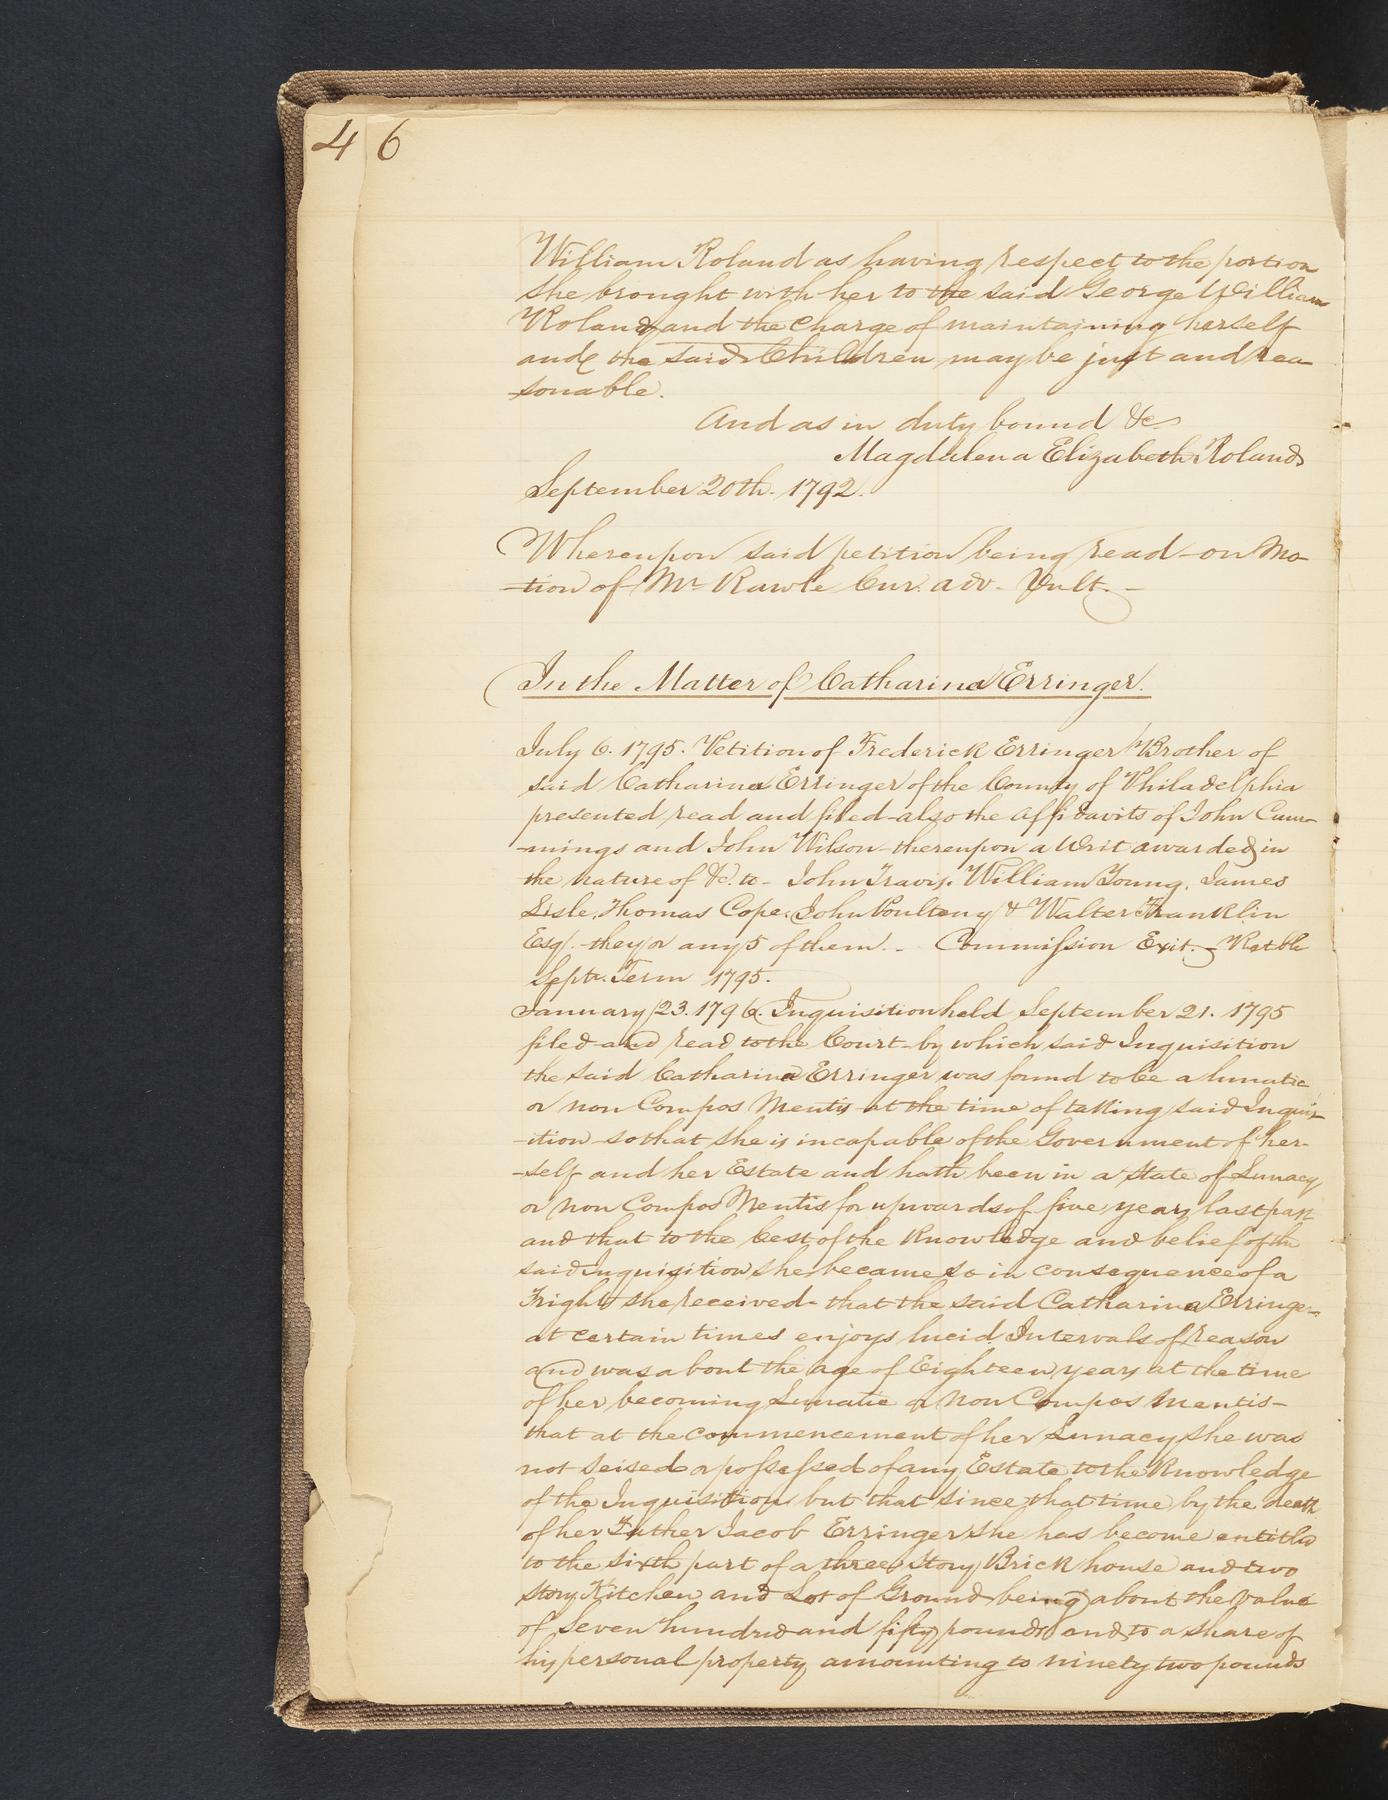 46
William Roland as having respect to the portion
she brought with her to the said George William
Roland and the charge of maintaining herself
and the said Children may be just and rea
sonable.
And as in duty bound &c
Magdalena Elizabeth Roland
September 20th. 1792.
Whereupon said petition being read on Mo
-tion of Mr Rawle Cur. adv. Vult. -
In the Matter of Catharina Erringer.
July 6. 1795. Petition of Frederick Erringer Brother of
said Catharina Erringer of the County of Philadelphia
presented read and filed - also the affidavits of John Cum-
-mings and John Wilson - thereupon a Writ awarded in
the nature of &c. to - John Travis. William Young. James
Lisle, Thomas Cope. John Poulteny & Walter Franklin
Esqs. they or any 5 of them. - Commission Exit. - Retble
Septr. Term 1795.
January 23. 1796. Inquisition held September 21. 1795
filed and read to the Court - by which said Inquisition
the said Catharina Erringer was found to be a lunatic
or non Compos Mentis at the time of taking said Inquis-
-ition - so that she is incapable of the Government of her-
-self and her Estate and hath been in a State of Lunacy
or non Compos Mentis for upwards of five years last past
and that to the best of the Knowledge and belief of the
said Inquisition she became so in consequence of a
Fright she received - that the said Catharina Erringer
at certain times enjoys lucid Intervals of reason
and was about the age of Eighteen years at the time
of her becoming Lunatic or Non Compos Mentis -
that at the commencement of her Lunacy she was
not seised or possessed of any Estate to the Knowledge
of the Inquisition but that since that time by the death
of her Father Jacob Erringer she has become entitled
to the sixth part of a three Story Brick house and two
story Kitchen and Lot of Ground being about the value
of seven hundred and fifty pounds and to a share of
his personal property amounting to ninety two pounds